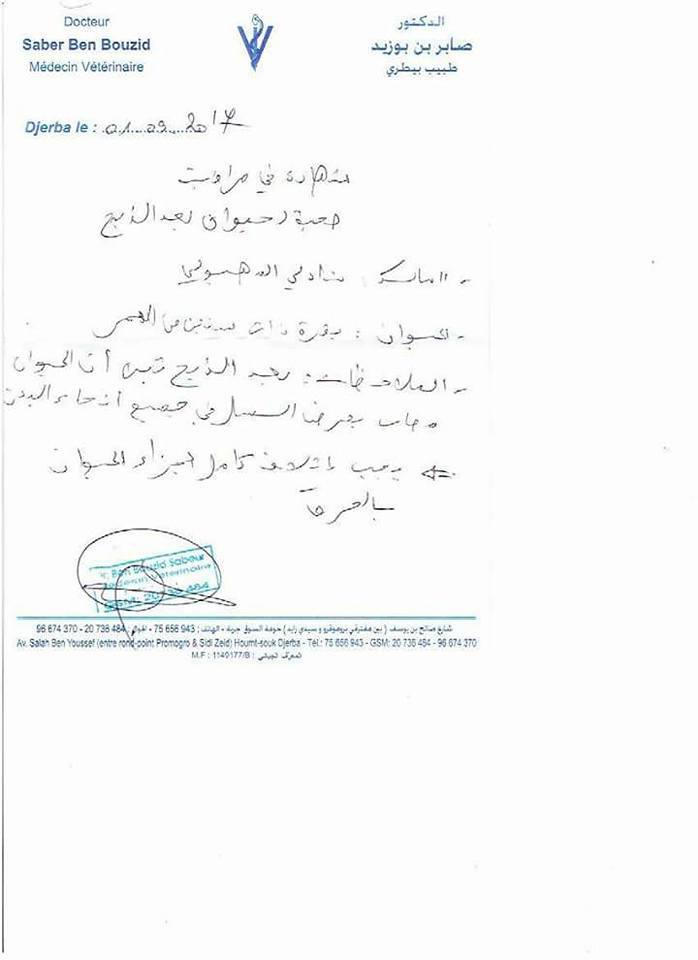 Docteur
Saber Ben Bouzid
Médecin Vétérinaire
الدكتور
صابر بن بوزيد
طبيب بيطري
Djerba le : 01.09.2017
شهادة في مراقبة
صحية لحيوان بعد الذبح
- المالك : شاذلي
- الحيوان : بقرة ذات سنتين من العمر
- الملاحظات : بعد الذبح تبين أن الحيوان
مصاب بمرض السل في جميع أنحاء البدن
يجب إتلاف كامل أجزاء الحيوان
بالحرق
Dr. Ben Bouzid Sabeur
Médecin Vétérinaire
GSM: 20 736 484
شارع صالح بن يوسف ( بين مفترقي بروموقرو و سيدي زايد ) حومة السوق جربة - الهاتف : 75 656 943 - الجوال : 20 736 484 - 96 674 370
Av. Salah Ben Youssef (entre rond-point Promogro & Sidi Zeid) Houmt-souk Djerba - Tél.: 75 656 943 - GSM: 20 736 484 - 96 674 370
M.F : 1149177/B : المعرف الجبائي